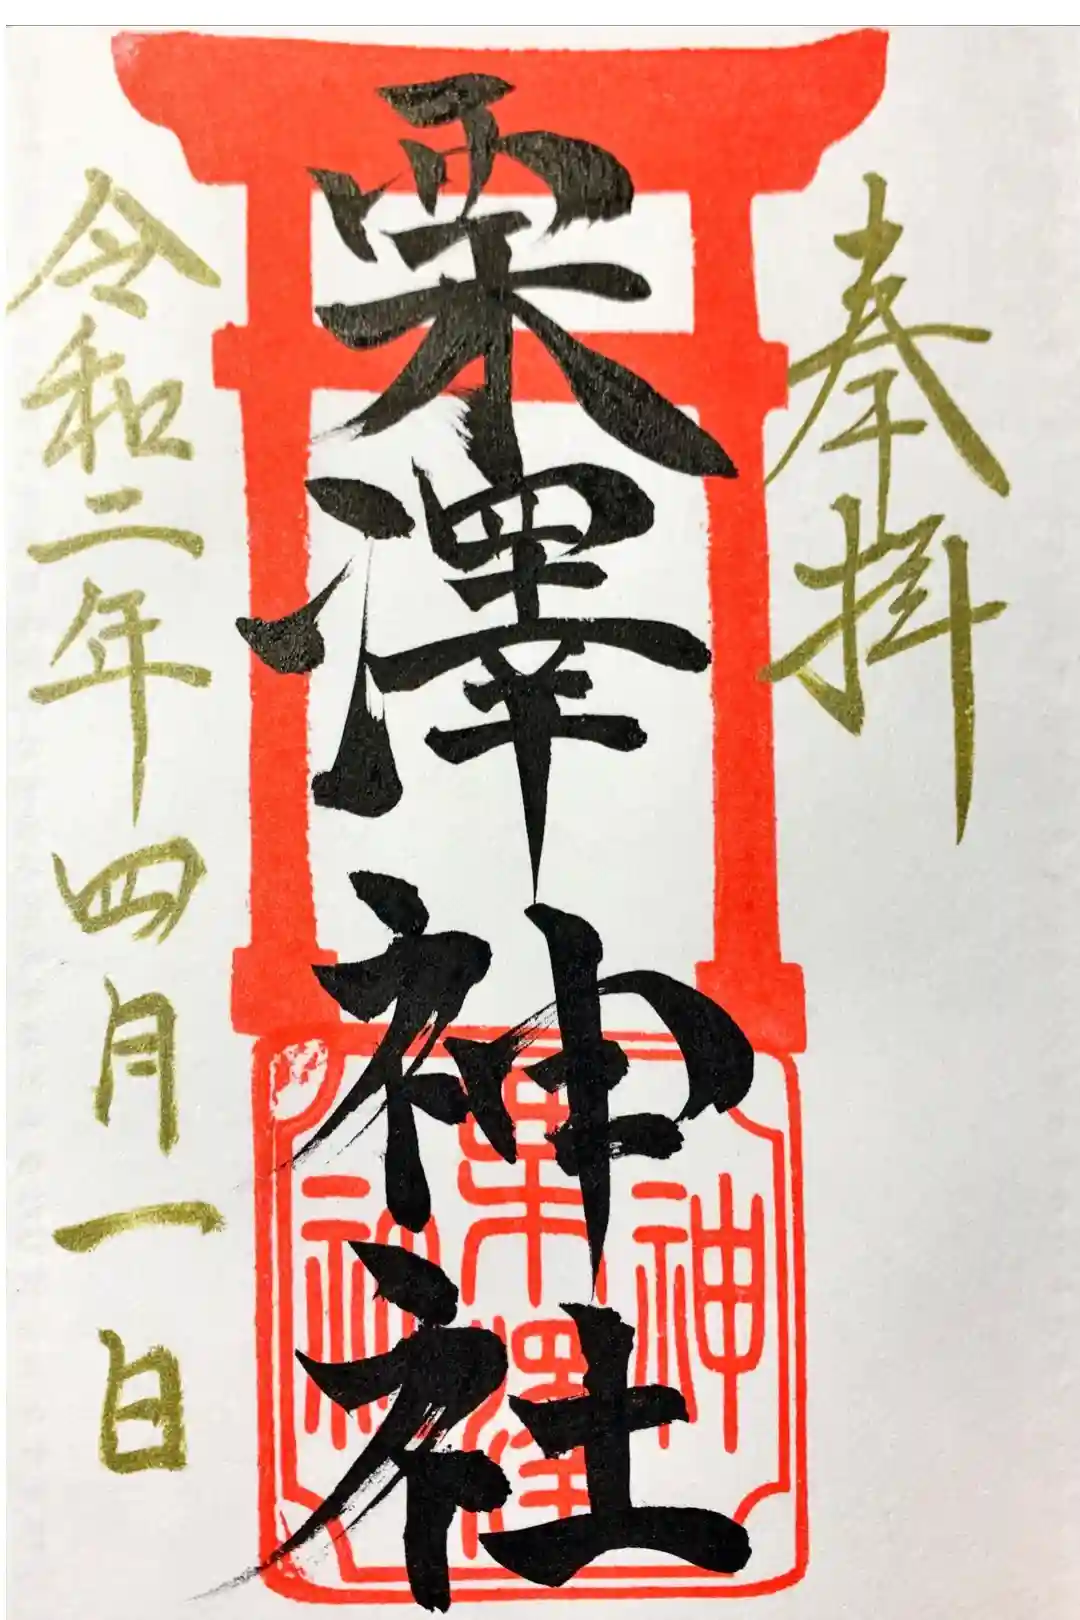 奉拝
栗澤神社
令和二年四月一日
栗澤
神社